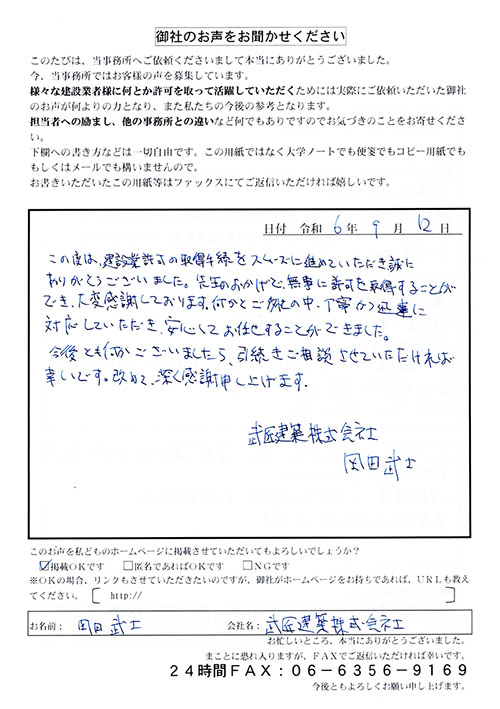 御社のお声をお聞かせください
このたびは、当事務所へご依頼くださいまして本当にありがとうございました。
今、当事務所ではお客様の声を募集しています。
様々な建設業者様に何とか許可を取って活躍していただくためには実際にご依頼いただいた御社
のお声が何よりの力となり、また私たちの今後の参考となります。
担当者への励まし、他の事務所との違いなど何でもありですのでお気づきのことをお寄せくださ
い。
下欄への書き方などは一切自由です。この用紙ではなく大学ノートでも便箋でもコピー用紙でも
もしくはメールでも構いませんので。
お書きいただいたこの用紙等はファックスにてご返信いただければ嬉しいです。
日付 令和 6年 9月 12日
この度は、建設業許可の取得手続をスムーズに進めていただき誠に
ありがとうございました。先生のおかげで、無事に許可を取得することが
でき、大変感謝しております。何かとご多忙の中、丁寧かつ迅速に
対応していただき、安心してお任せすることができました。
今後とも何かございましたら、引続きご相談させていただければ
幸いです。改めて、深く感謝申し上げます。
武匠建築株式会社
岡田武士
このお声を私どものホームページに掲載させていただいてもよろしいでしょうか？
☑掲載OKです □匿名であればOKです □NGです
※OKの場合、リンクもさせていただきたいのですが、御社がホームページをお持ちであれば、URLも教え
てください。〔 http:// 〕
お名前： 岡田 武士 会社名： 武匠建築株式会社
お忙しいところ、本当にありがとうございました。
まことに恐れ入りますが、FAXでご返信いただければ幸いです。
24時間FAX：06-6356-9169
今後ともよろしくお願い申し上げます。